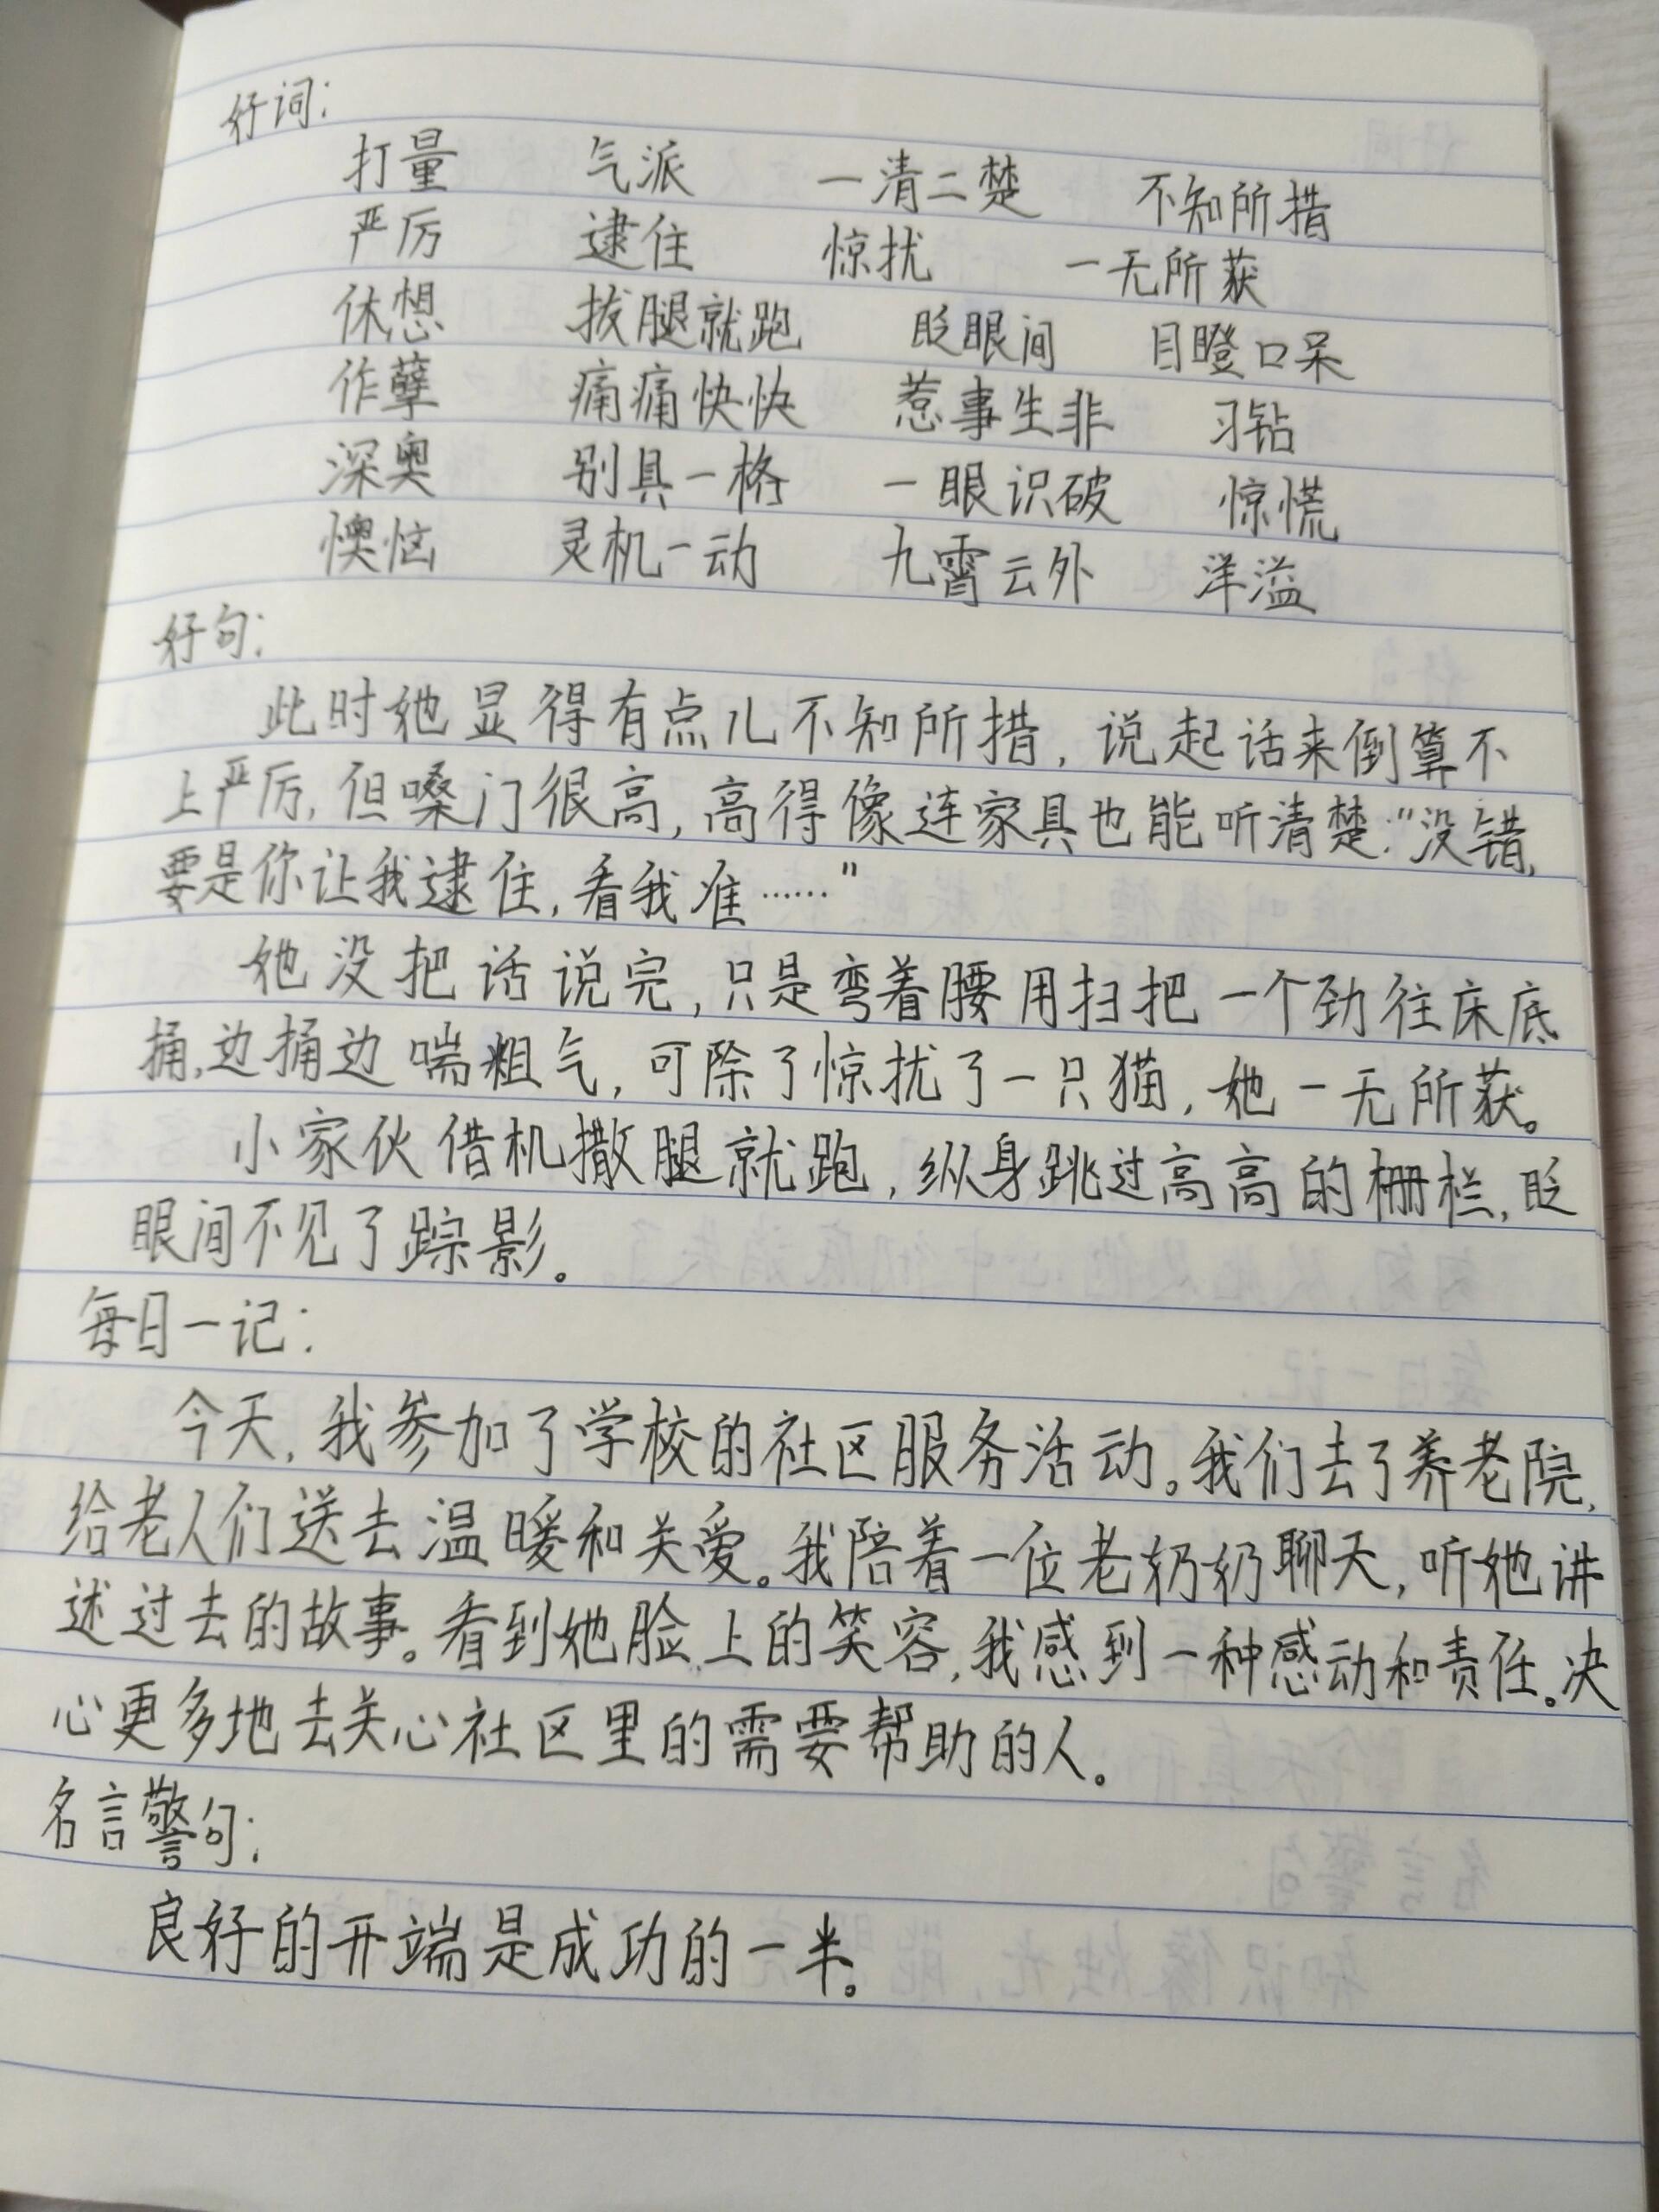 好词:
打量 气派 一清二楚 不知所措
严厉 逮住 惊扰 一无所获
休想 拔腿就跑 眨眼间 目瞪口呆
作孽 痛痛快快 惹事生非 刁钻
深奥 别具一格 一眼识破 惊慌
懊恼 灵机一动 九霄云外 洋溢
好句:
此时她显得有点儿不知所措,说起话来倒算不
上严厉,但嗓门很高,高得像连家具也能听清楚:"没错,
要是你让我逮住,看我准……"
她没把话说完,只是弯着腰用扫把一个劲往床底
捅,边捅边喘粗气,可除了惊扰了一只猫,她一无所获。
小家伙借机撒腿就跑,纵身跳过高高的栅栏,眨
眼间不见了踪影。
每日一记:
今天,我参加了学校的社区服务活动。我们去了养老院,
给老人们送去温暖和关爱。我陪着一位老奶奶聊天,听她讲
述过去的故事。看到她脸上的笑容,我感到一种感动和责任。决
心更多地去关心社区里的需要帮助的人。
名言警句:
良好的开端是成功的一半。